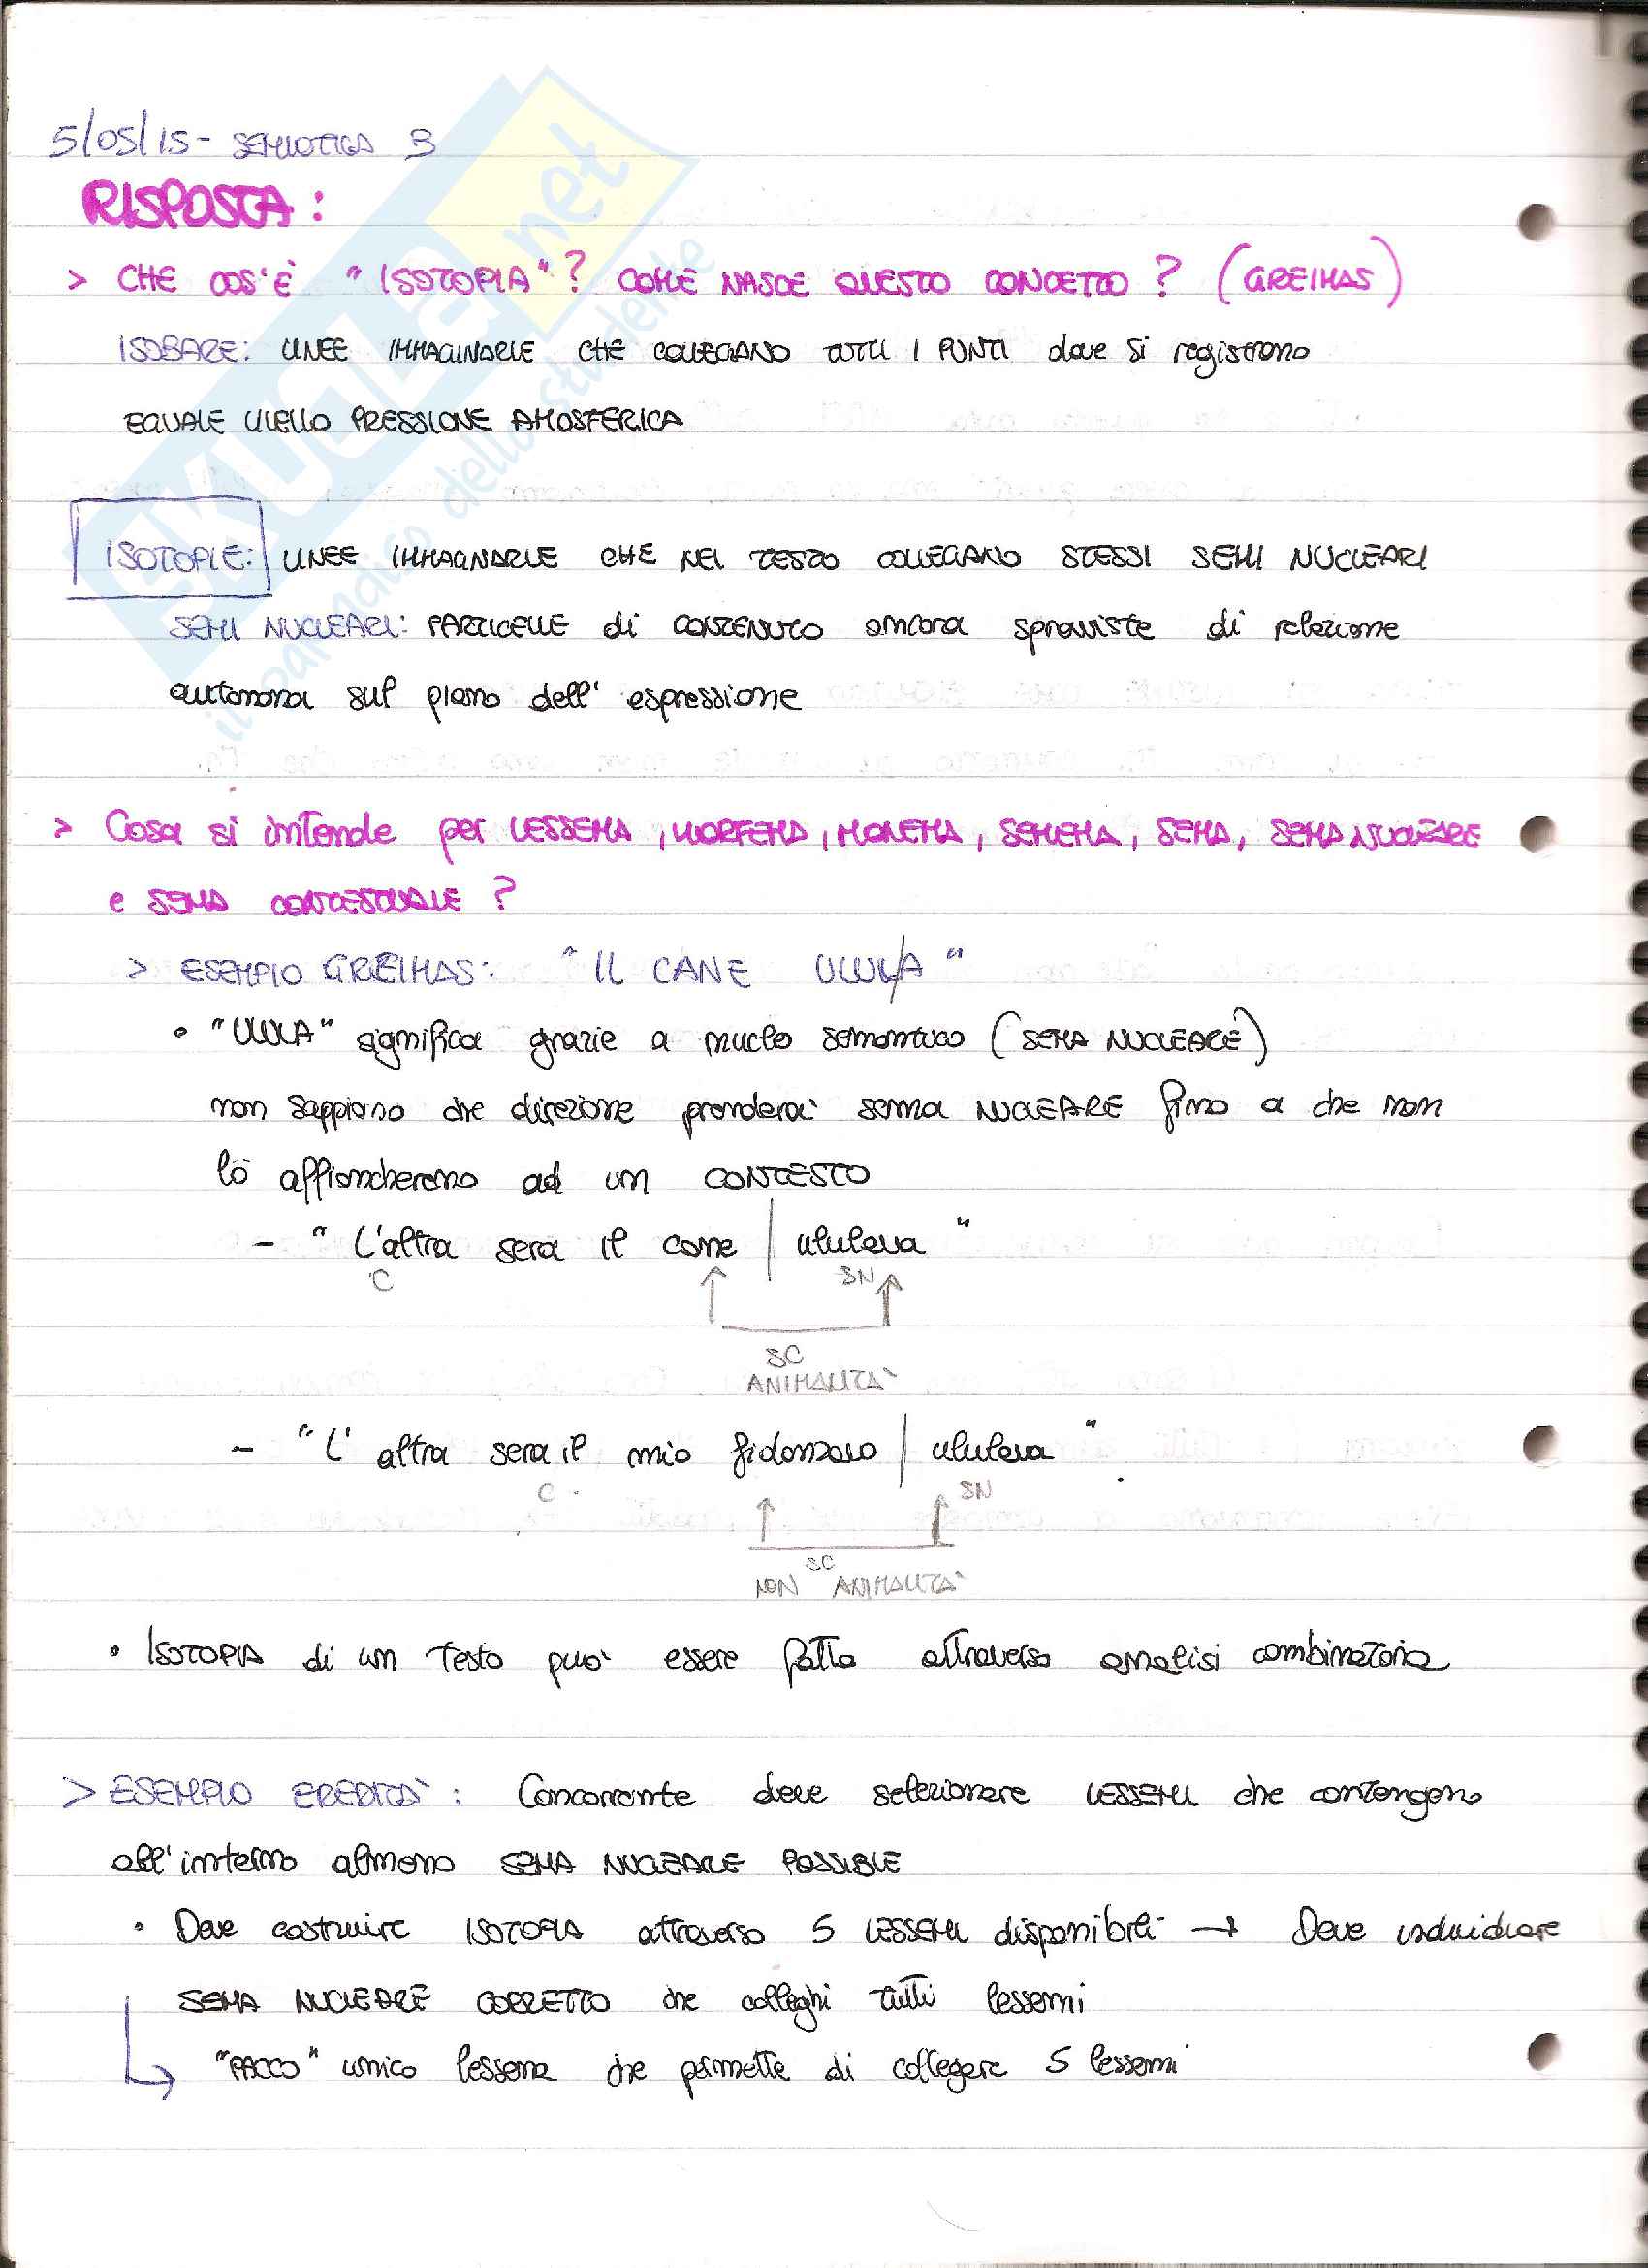 5/05/15 - SEMIOTICA B
RISPOSTA :
> CHE COS'È "ISOTOPIA"? COME NASCE QUESTO CONCETTO ? (GREIMAS)
ISOBARE: LINEE IMMAGINARIE CHE COLLEGANO TUTTI I PUNTI dove si registrano
EGUALE LIVELLO PRESSIONE AMOSFERICA
ISOTOPIE: LINEE IMMAGINARIE CHE NEL TESTO COLLEGANO STESSI SEMI NUCLEARI
SEMI NUCLEARI: PARTICELLE di CONTENUTO ancora sprovviste di relazione
autonoma sul piano dell' espressione
> Cosa si intende per LESSEMA, MORFEMA, MONEMA, SEMEMA, SEMA, SEMA NUCLEARE
e SEMA CONTESTUALE ?
> ESEMPIO GREIMAS: "IL CANE ULULA"
• "ULULA" significa grazie a nucleo semantico (SEMA NUCLEARE)
non sappiamo che direzione prenderà sema NUCLEARE fino a che non
lo affiancheremo ad un CONTESTO
- "L'altra sera il cane | ululava"
C SN
SC
ANIMALITÀ
- "L'altra sera il mio fidanzato | ululava"
C SN
SC
NON ANIMALITÀ
• ISOTOPIA di un testo può essere fatta attraverso analisi combinatoria
> ESEMPIO EREDITÀ : Concorrente deve selezionare LESSEMI che contengono
all'interno almeno SEMA NUCLEARE POSSIBLE
• Deve costruire ISOTOPIA attraverso 5 LESSEMI disponibili → Deve individuare
SEMA NUCLEARE CORRETTO che colleghi tutti lessemi
"PACCO" unico lessema che permette di collegare 5 lessemi
SKUOLA.net
il paradiso dello studente